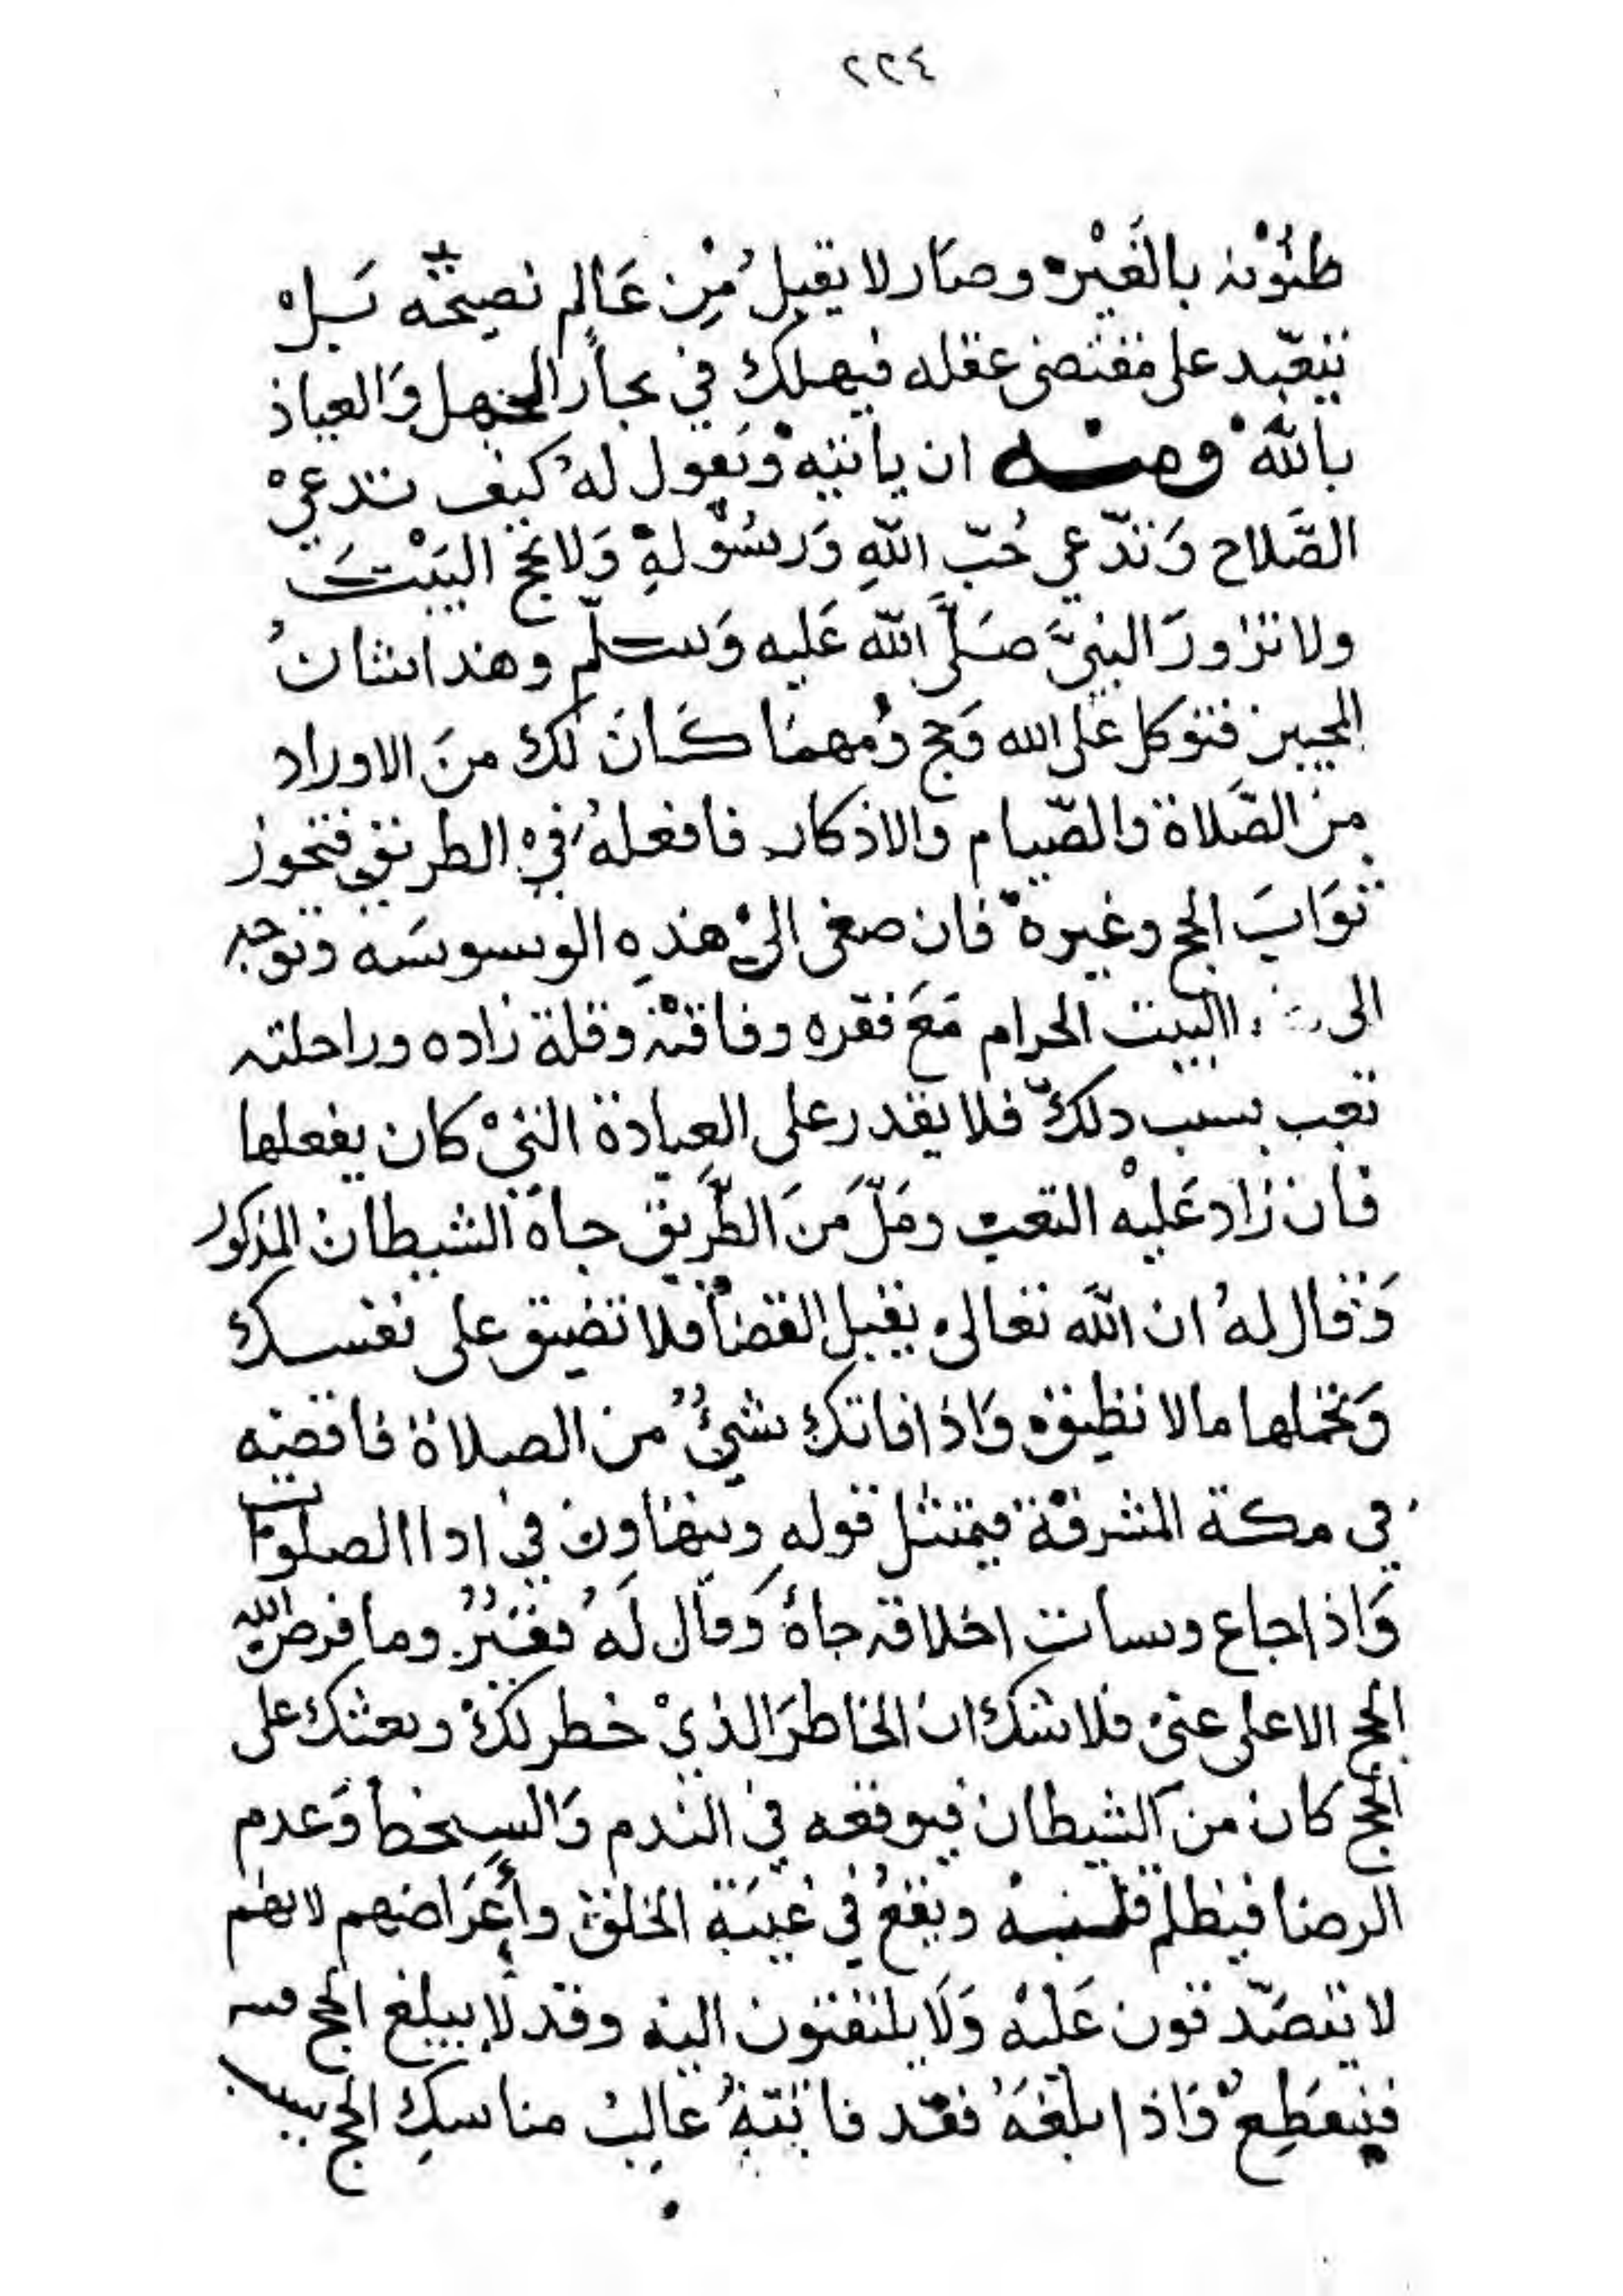 ٢٢٤
ظنونه بالغير وصار لا يقبل من عالم نصيحة بل
يتعبد على مقتضى عقله فيهلك في بحار الجهل والعياذ
بالله ومنه ان ياتيه ويقول له كيف تدعي
الصّلاح وتدّعي حُبّ الله ورسوله ولا تحج البيت
ولا تزور النبيّ صلّى الله عليه وسلّم وهذا شان
المحبين فتوكل على الله وحج ومهما كان لك من الاوراد
من الصّلاة والصّيام والاذكار فافعله في الطريق فتحوز
ثواب الحج وغيره فان صغى الى هذه الوسوسه وتوجه
الى البيت الحرام مع فقره وفاقته وقلة زاده وراحلته
تعب بسبب ذلك فلا يقدر على العبادة التي كان يفعلها
فان زاد عليه التعب وملّ من الطّريق جاه الشيطان المذكور
وقال له ان الله تعالى يقبل القضا فلا تضيق على نفسك
وتحملها مالا تطيقه واذا فاتك شيء من الصلاة فاقضيه
في مكة المشرفة فيمتثل قوله ويتهاون في ادا الصلوات
واذا جاع وسات اخلاقه جاه وقال له فقير وما فرض الله
الحج الا على غني فلا شك ان الخاطر الذي خطر لك وبعثك على
الحج كان من الشيطان فيوقعه في الندم والسخط وعدم
الرضا فيظلم قلبه ويقع في غيبة الخلق وأعراضهم لانهم
لا يتصدّقون عليه ولا يلتفتون اليه وقد لا يبلغ الحج منه
فينقطع واذا بلغه فقد فاتته غالب مناسك الحج